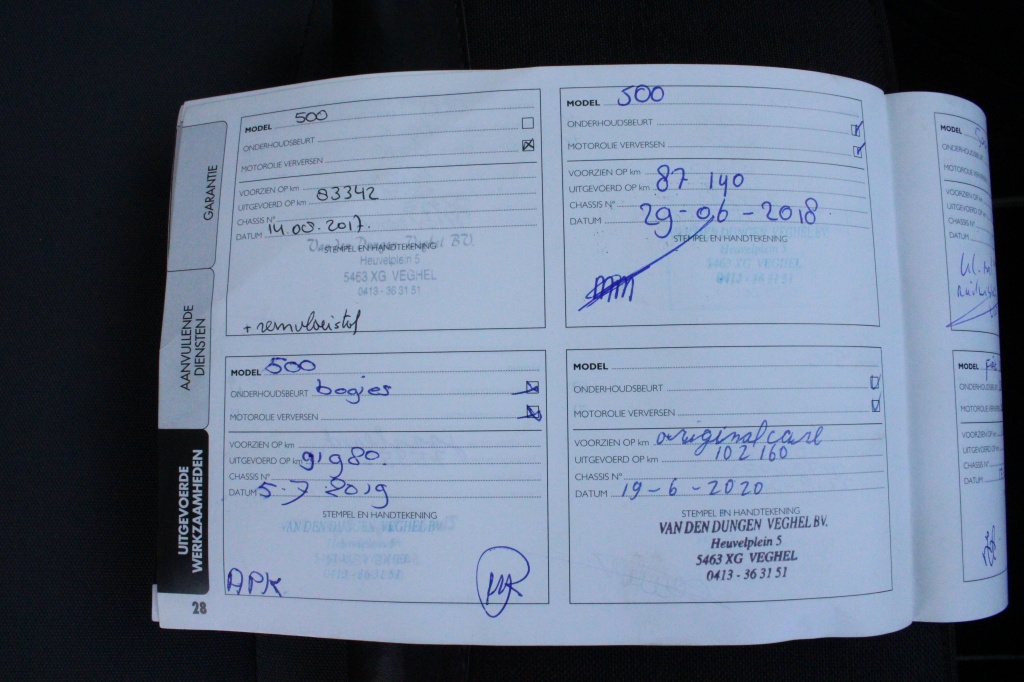 GARANTIE
AANVULLENDE
DIENSTEN
UITGEVOERDE
WERKZAAMHEDEN
28
MODEL 500
ONDERHOUDSBEURT
MOTOROLIE VERVERSEN
VOORZIEN OP km
UITGEVOERD OP km 83342
CHASSIS N°
DATUM 14.00.2017.
STEMPEL EN HANDTEKENING
Heuvelplein 5
5463 XG VEGHEL
0413 - 36 31 51
+ remvloeistof
MODEL 500
ONDERHOUDSBEURT
MOTOROLIE VERVERSEN
VOORZIEN OP km
UITGEVOERD OP km 87 140
CHASSIS N°
DATUM 29-06-2018
STEMPEL EN HANDTEKENING
VAN DEN DUNGEN VEGHEL BV.
Heuvelplein 5
5463 XG VEGHEL
0413 - 36 31 51
MODEL 500
ONDERHOUDSBEURT bogies
MOTOROLIE VERVERSEN
VOORZIEN OP km
UITGEVOERD OP km 91980.
CHASSIS N°
DATUM 5-7-2019
STEMPEL EN HANDTEKENING
VAN DEN DUNGEN VEGHEL BV.
0413 - 36 31 51
APK
MODEL
ONDERHOUDSBEURT
MOTOROLIE VERVERSEN
VOORZIEN OP km original care
UITGEVOERD OP km 102 160
CHASSIS N°
DATUM 19-6-2020
STEMPEL EN HANDTEKENING
VAN DEN DUNGEN VEGHEL BV.
Heuvelplein 5
5463 XG VEGHEL
0413 - 36 31 51
MODEL
VOORZIEN OP
CHASSIS N°
DATUM
MODEL
CHASSIS N°
DATUM